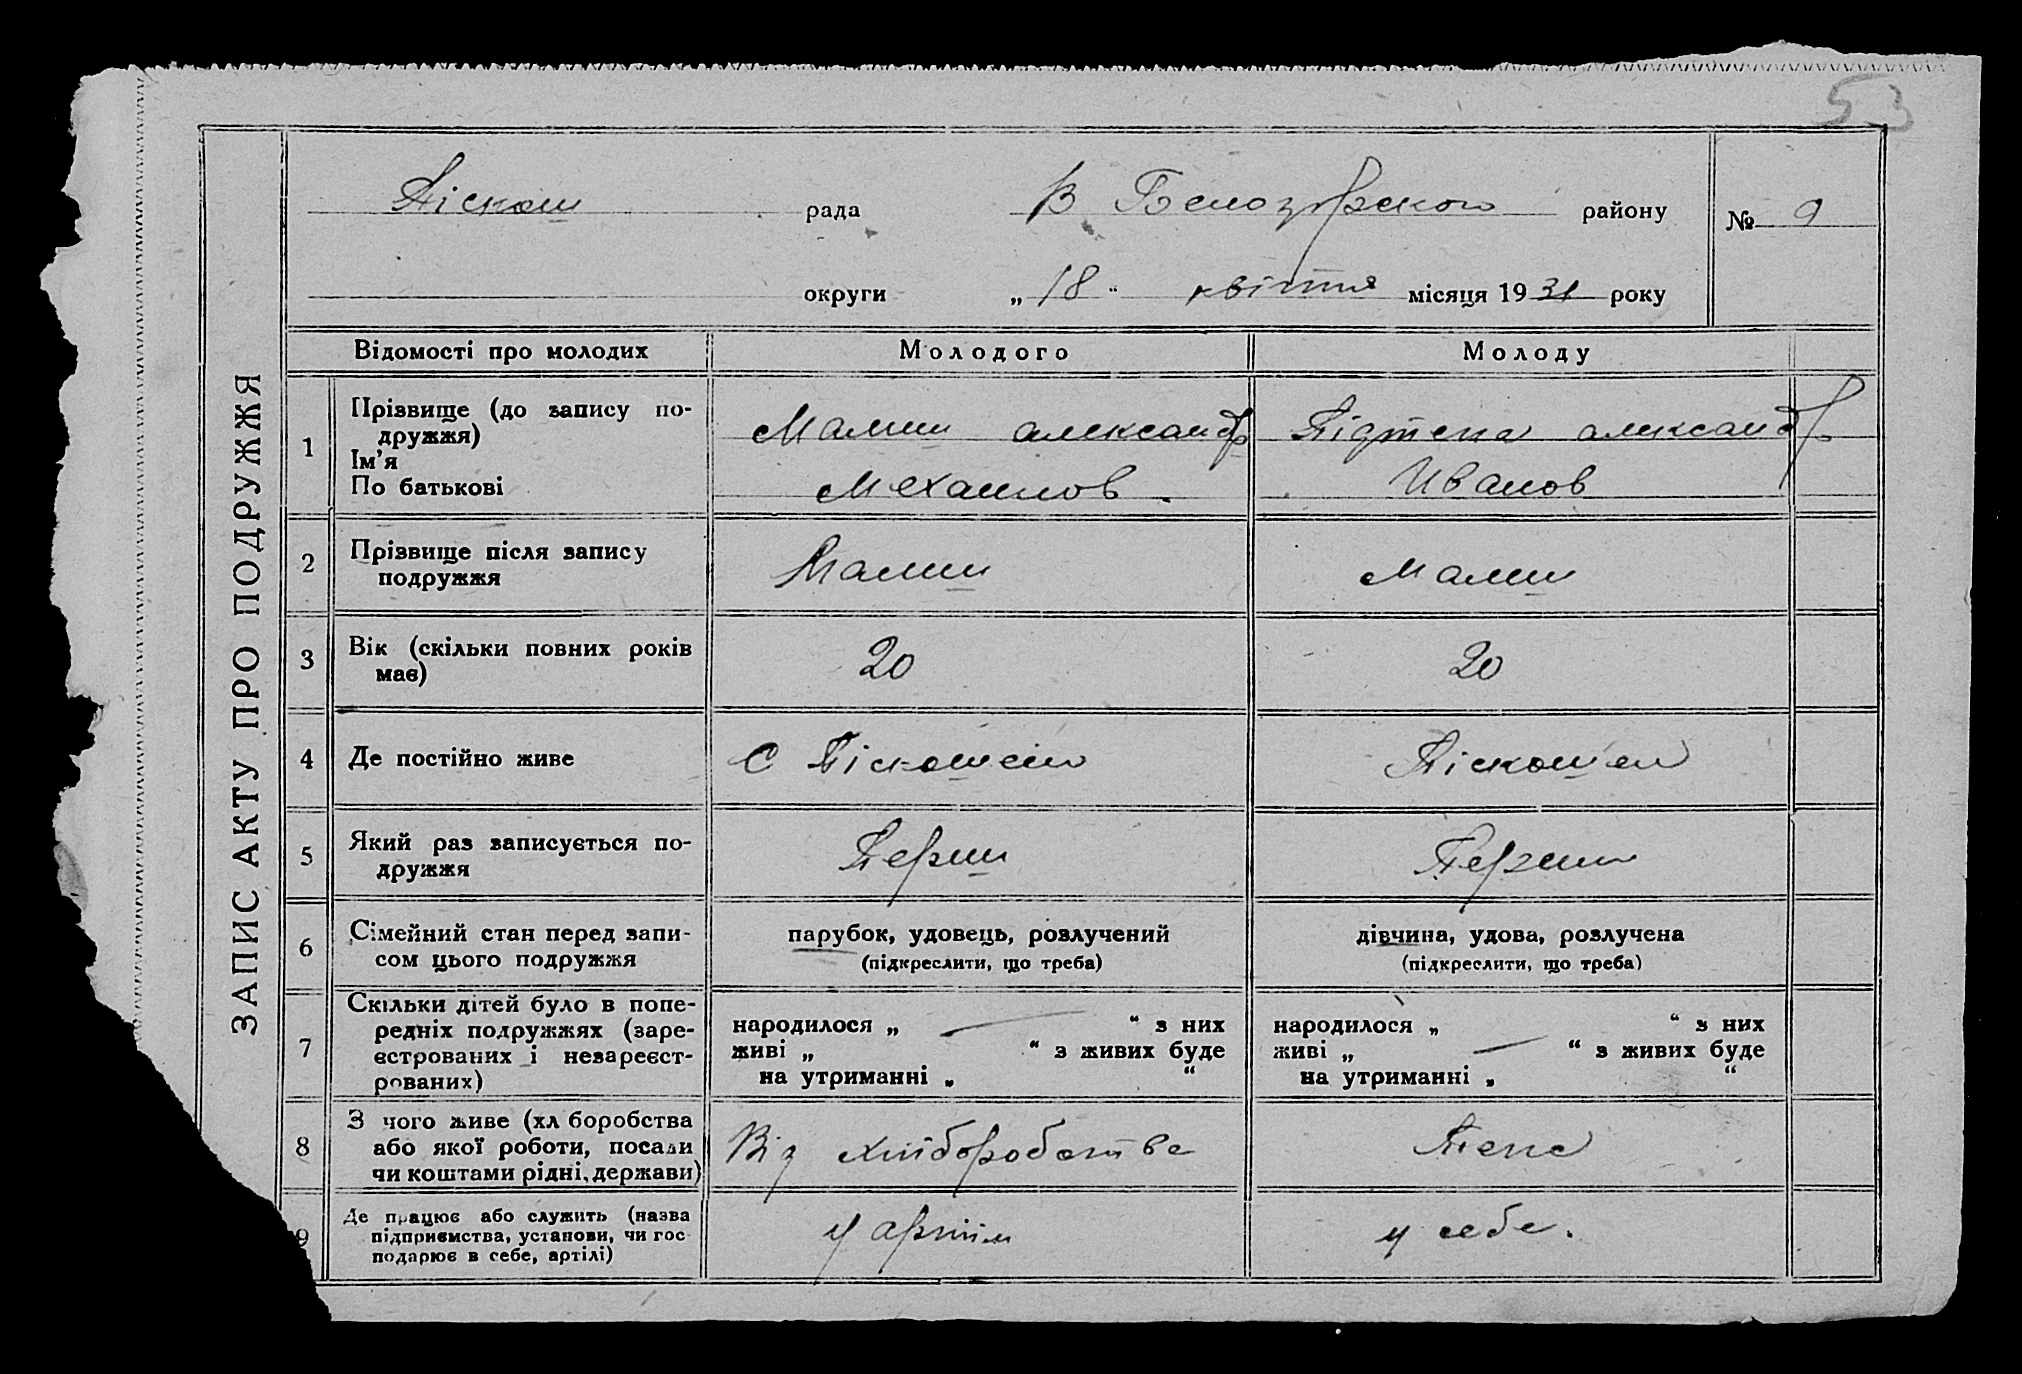 53
Піскош рада В Белозорского району № 9
округи „ 18 “ квітня місяця 1931 року
ЗАПИС АКТУ ПРО ПОДРУЖЖЯ
Відомості про молодих Молодого Молоду
1 Прізвище (до запису по-
дружжя)
Ім’я
По батькові
Малиш александр
Механлов.
александр
Иванов
2 Прізвище після запису
подружжя
Малиш Малиш
3 Вік (скільки повних років
має)
20 20
4 Де постійно живе
С
5 Який раз записується по-
дружжя
Перши Перши
6 Сімейний стан перед запи-
сом цього подружжя
парубок, удовець, розлучений
(підкреслити, що треба)
дівчина, удова, розлучена
(підкреслити, що треба)
7 Скільки дітей було в попе-
редніх подружжях (заре-
єстрованих і незареєст-
рованих)
народилося „ — “ з них
живі „ “ з живих буде
на утриманні „ “
народилося „ “ з них
живі „ — “ з живих буде
на утриманні „ “
8 З чого живе (хл боробства
або якої роботи, посади
чи коштами рідні, держави)
Від хліборобства
9 Де працює або служить (назва
підприємства, установи, чи гос
подарює в себе, артілі)
У артіли у себе.